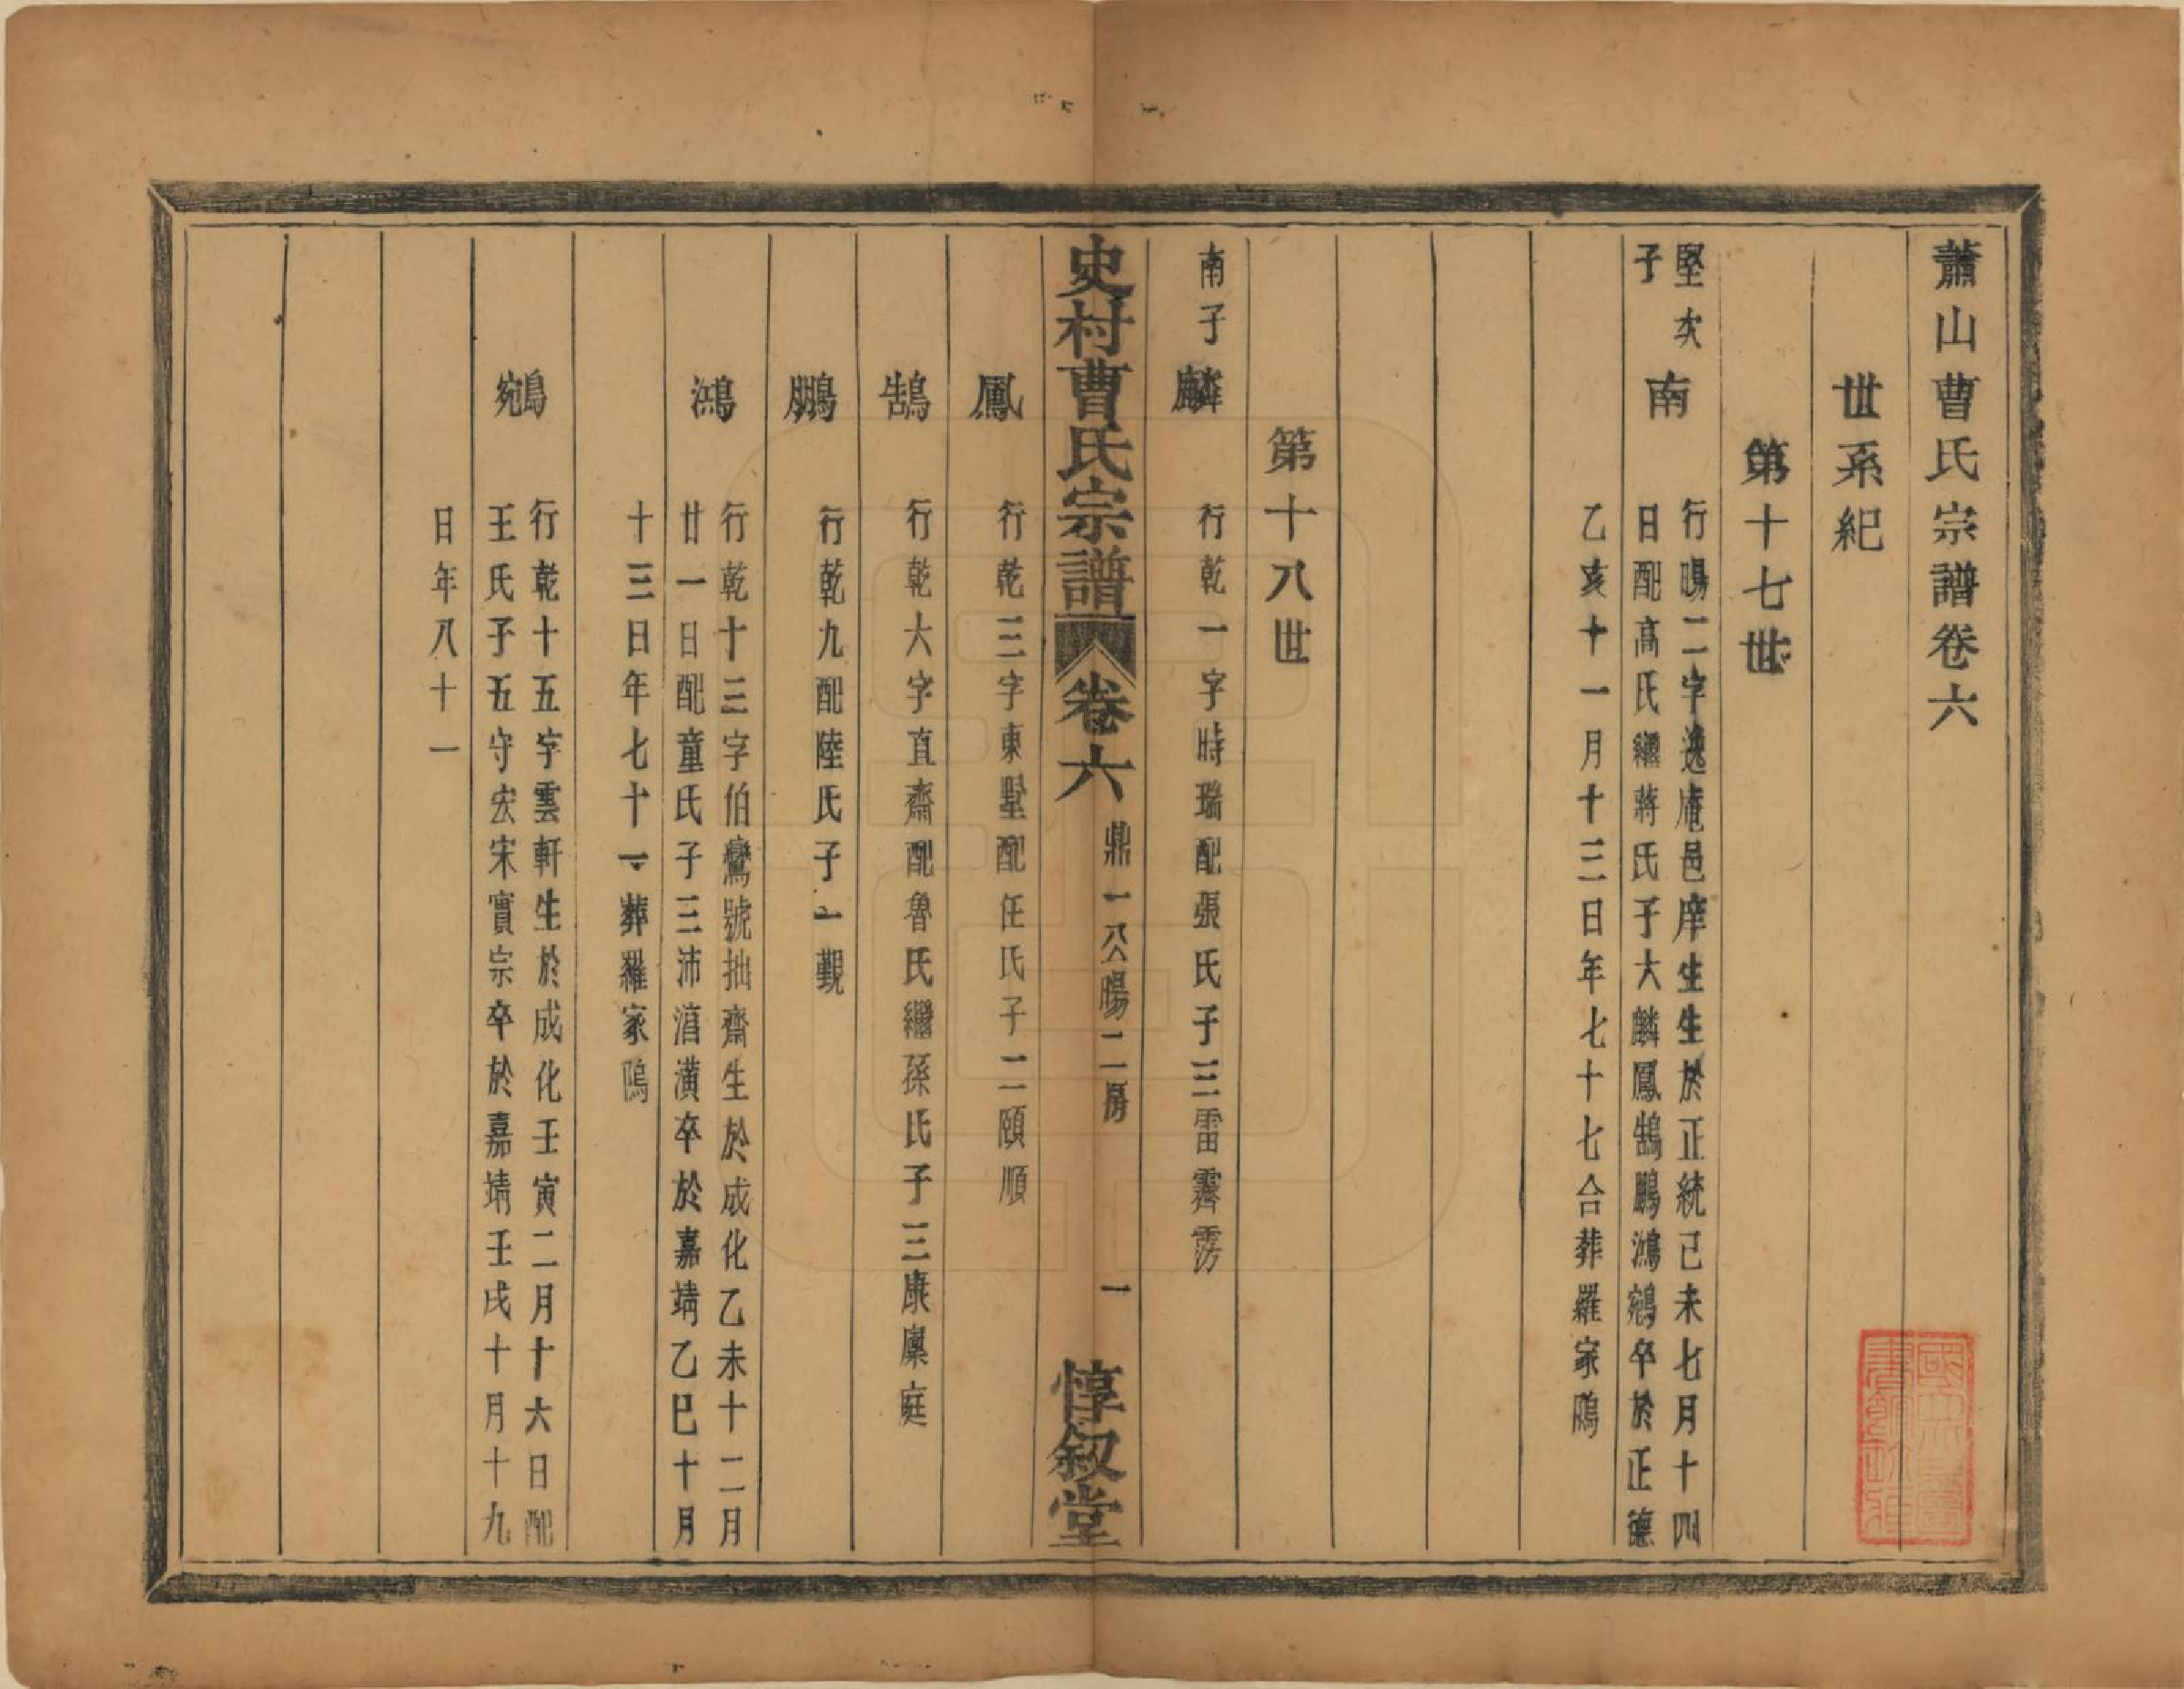 蕭山曹氏宗譜卷六
世系紀
第十七世
堅次
子
南
行暘二字逸庵邑庠生生於正統已未七月十四
日配高氏繼蔣氏子大麟鳳鵠鵬鴻鵷卒於正德
乙亥十一月十三日年七十七合葬羅家鴟
第十八世
南子
麟
行乾一字時瑞配張氏子三雷霽霶
史村曹氏宗譜 卷六 鼎一公暘二房 一 惇叙堂
鳳
行乾三字東墅配任氏子二頤順
鵠
行乾六字直齋配魯氏繼孫氏子三康廩庭
鵬
行乾九配陸氏子一觀
鴻
行乾十三字伯鸞號拙齋生於成化乙未十二月
廿一日配童氏子三沛㴠潢卒於嘉靖乙巳十月
十三日年七十一葬羅家隝
鵷
行乾十五字雲軒生於成化壬寅二月十六日配
王氏子五守宏宋實宗卒於嘉靖壬戌十月十九
日年八十一